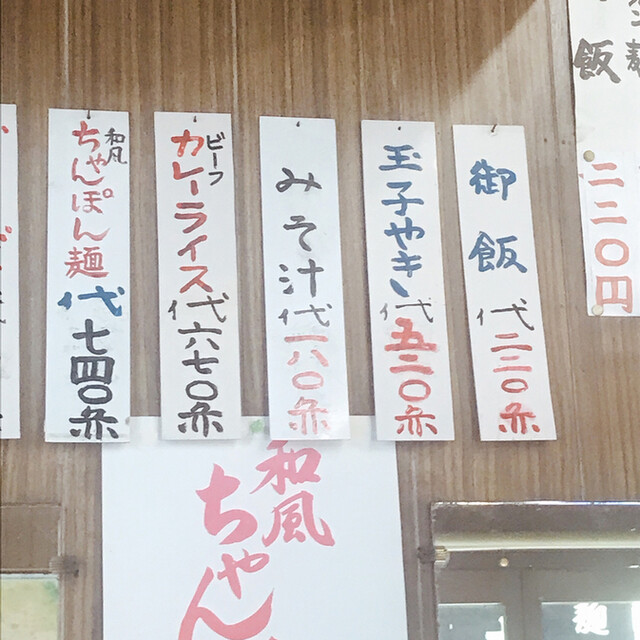 飯
二二〇円
御飯 代 二二〇円
玉子やき 代 五二〇円
みそ汁 代 一八〇円
ビーフ
カレーライス 代 六七〇円
和風
ちゃんぽん麺 代 七四〇円
和風
ちゃん
麺